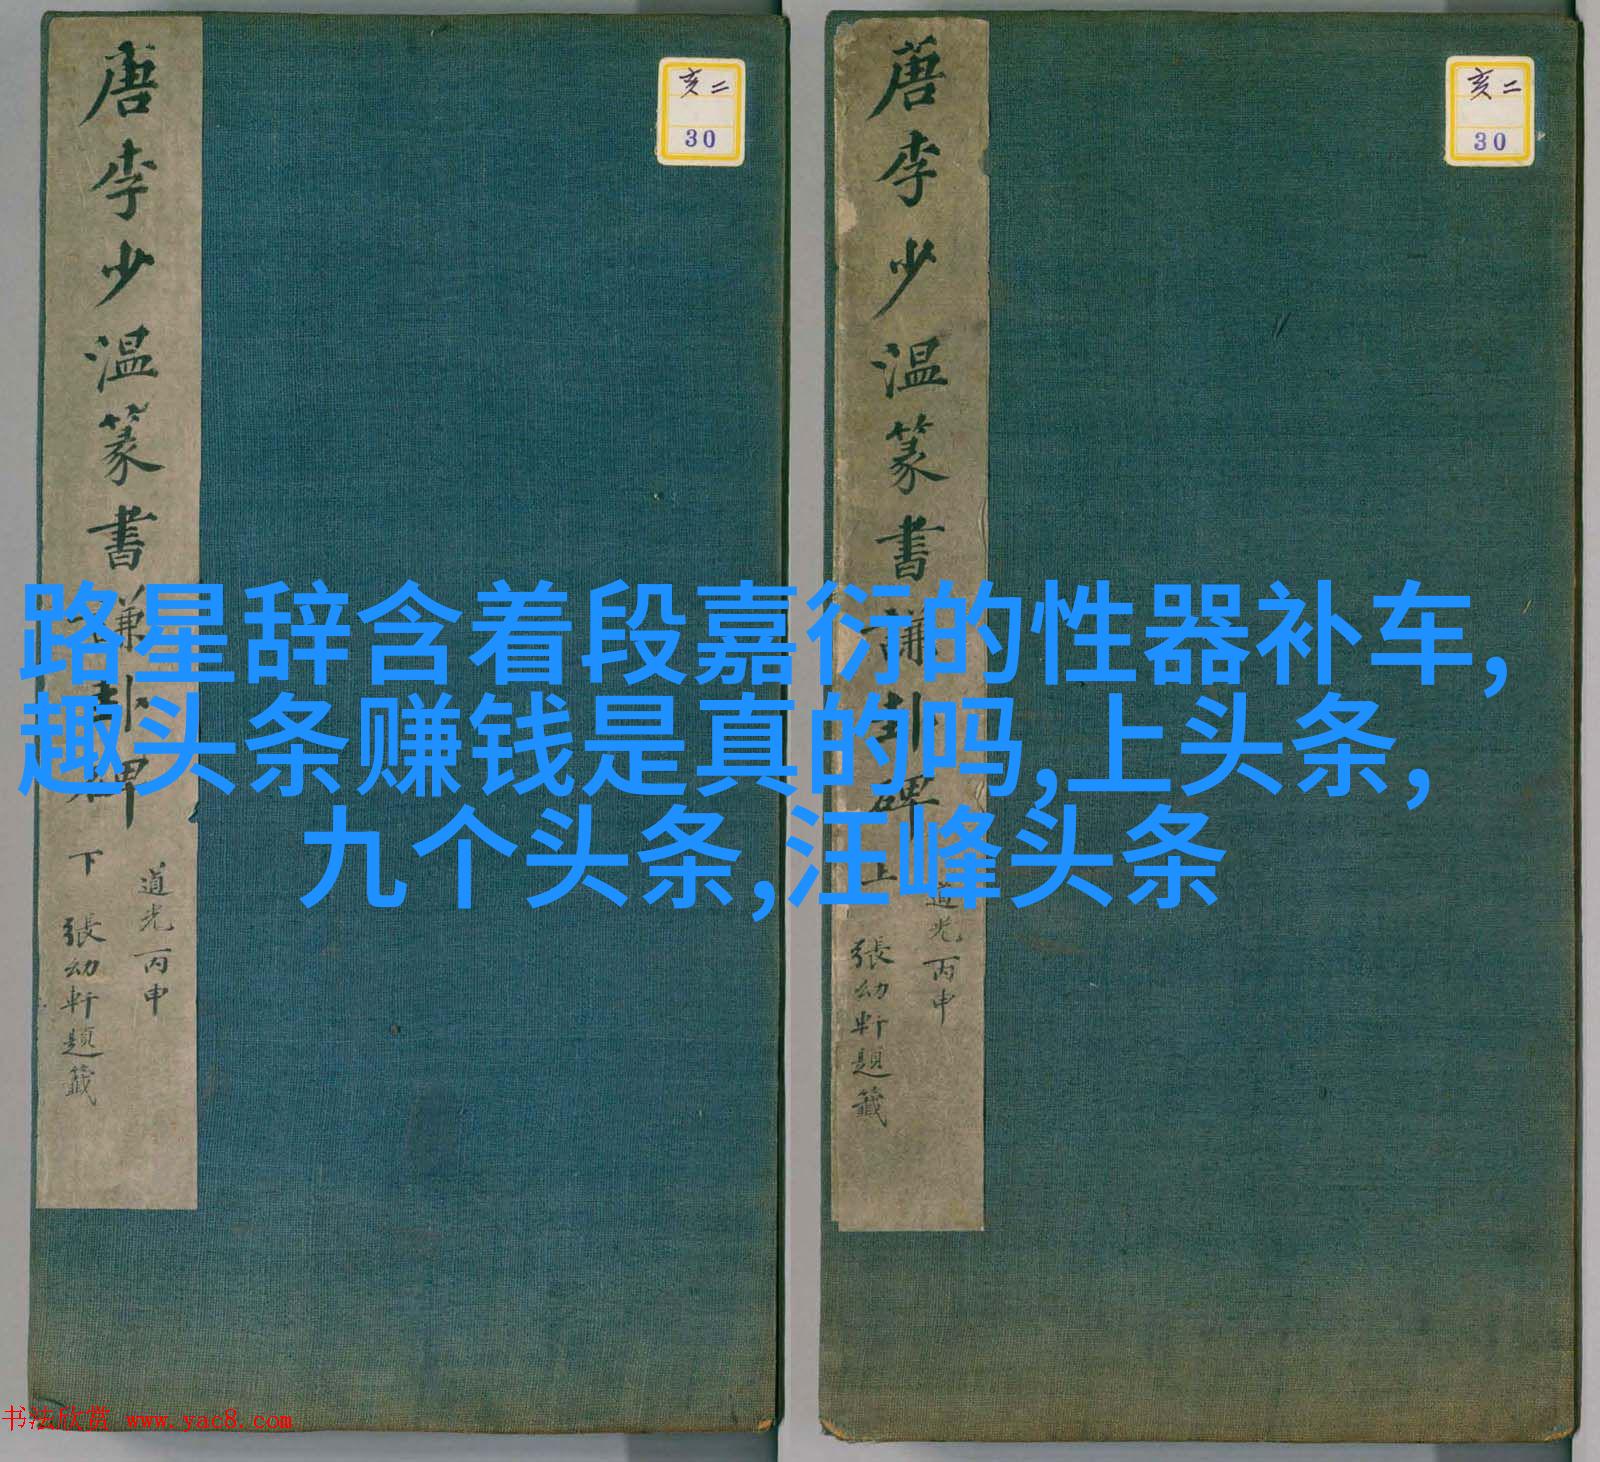 唐李少温篆書謙卦碑下
道光丙申
張幼軒題籤
亥二
30
唐李少温篆書謙卦碑上
道光丙申
張幼軒題籤
亥二
30
路星辞含着段嘉衍的性器补车,
趣头条赚钱是真的吗,上头条,
九个头条,汪峰头条
书法欣赏 www.yac8.com